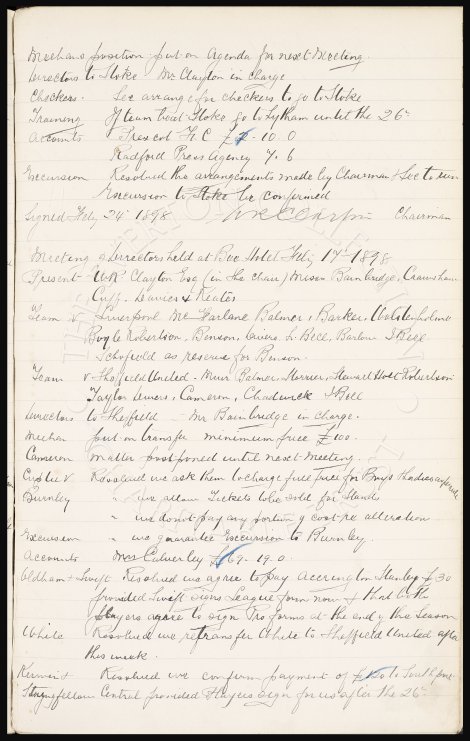 Meehans position put on Agenda for next Meeting.
Directors to Stoke Mr Clayton in charge
Checkers. Sec arrange for checkers to go to Stoke
Training If team beat Stoke go to Lytham until the 26th
Accounts Prescot F.C. £ - 10. 0
Radford Press Agency 7. 6
Excursion Resolved the arrangements made by Chairman & Sec to run
Excursion to Stoke be confirmed
Signed Feby 24th 1898 Chairman
Meeting of Directors held at Bee Hotel Feby 17th 1898
Present WR Clayton Esq (in the chair) Messrs Bainbridge, Crawshaw
Cuff. Davies & Keates
Team v Liverpool McFarlane Balmer, Barker, Wolstenholme
Boyle Robertson, Benson, L. Bell, Barlow J Bell
Schofield as reserve for Benson.
Team v Sheffield United. Muir Balmer Storrier, Stewart Holt Robertson
Taylor Divers, Cameron, Chadwick J Bell
Directors to Sheffield - Mr Bainbridge in charge.
Meehan put on transfer minimum price £100.
Cameron matter postponed until next Meeting.
Cuptie v Resolved we ask them to charge full price for Boys & ladies
Burnley " we allow Tickets to be sold for Stands
" we do not pay any portion of cost re alteration
Excursion " we guarantee Excursion to Burnley.
Accounts Mrs Calverley £69. 19. 0.
Oldham & Swift Resolved we agree to pay Accrington Stanley £30
provided Swift signs League form now & that both
players agree to sign Pro forms at the end of the Season
White Resolved we retransfer White to Sheffield United after
this week.
Kirwan & Resolved we confirm payment of to Southport
Stringfellow Central provided Players sign for us after the 26th